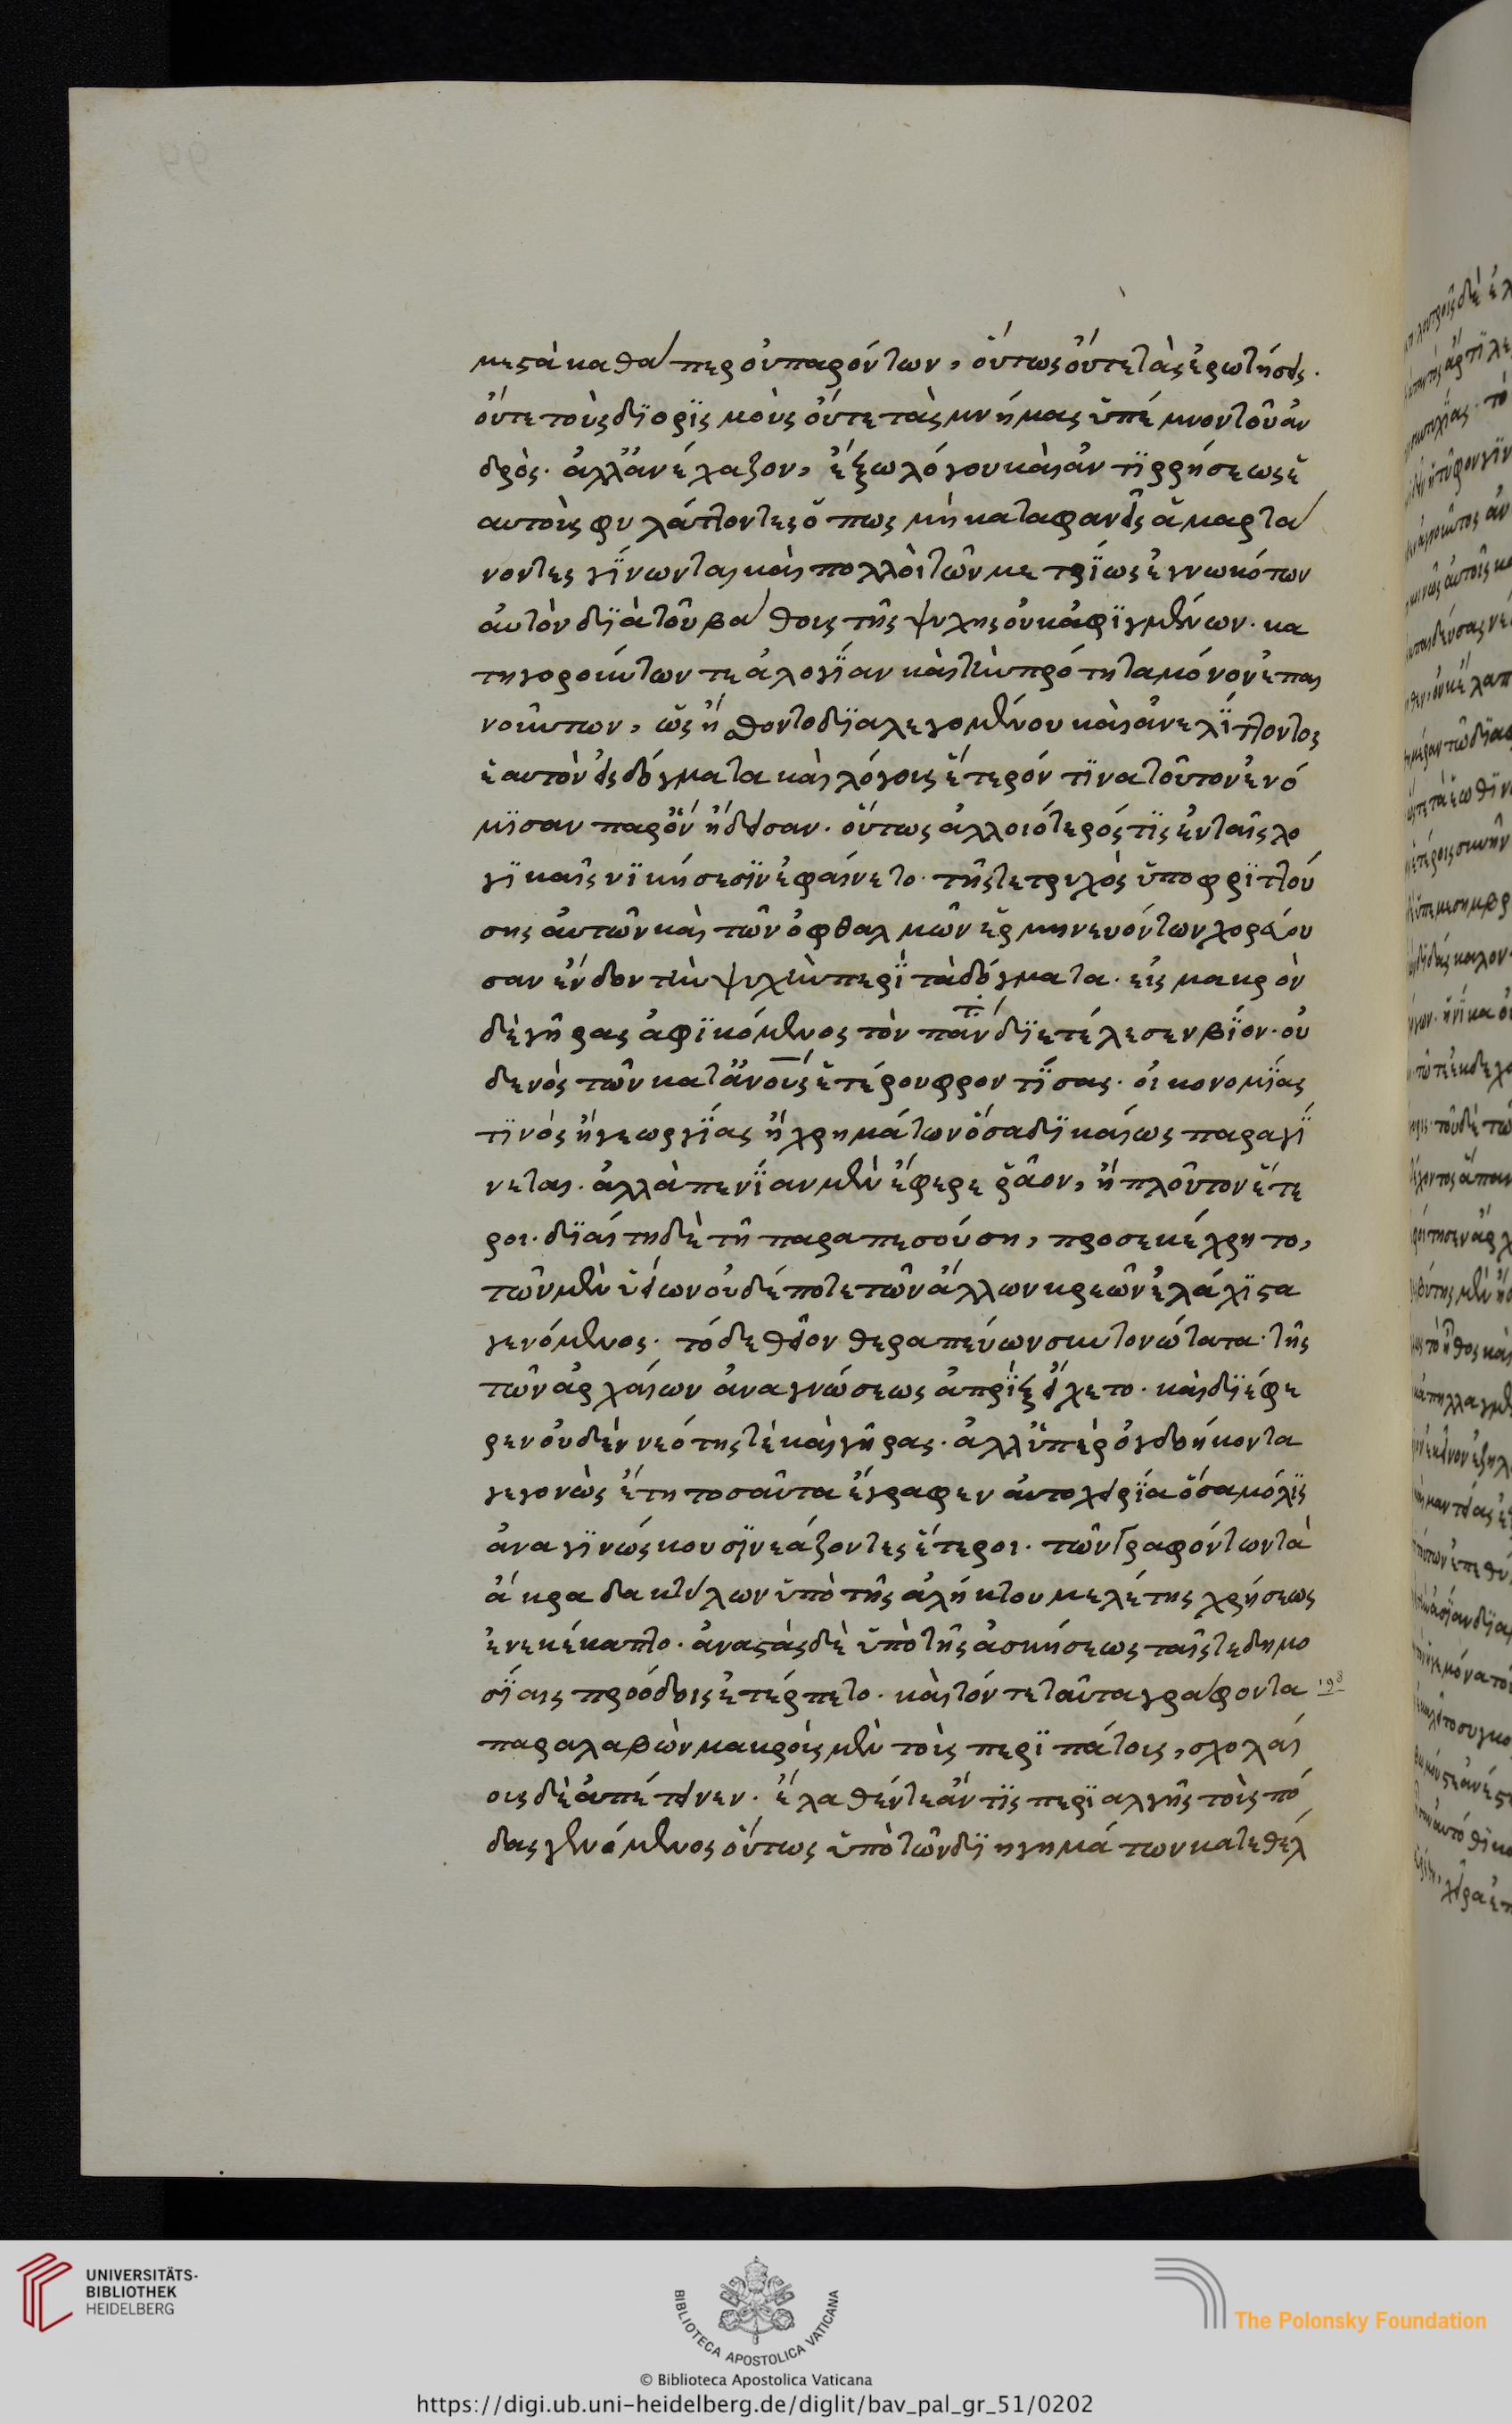 μεστὰ καθάπερ οὐ παρόντων, οὕτως οὔτε τὰς ἐρωτήσεις.
οὔτε τοὺς διορισμοὺς οὔτε τὰς μνήμας ὑπέμνον τοῦ ἀν
δρὸς. ἀλλ' ἀνέχαζον, ἔξω λόγου καὶ ἀντιρρήσεως ἑ
αυτοὺς φυλάττοντες ὅπως μὴ καταφανεῖς ἁμαρτά
νοντες γίνωνται καὶ πολλοὶ τῶν μετρίως ἐγνωκότων
αὐτὸν διὰ τοῦ βάθους τῆς ψυχῆς οὐκ ἀφιγμένων. κα
τηγορούντων τε ἀλογίαν καὶ τὴν πρότητα μόνον ἐπαι
νούντων, ὡς ᾔσθοντο διαλεγομένου καὶ ἀνελίττοντος
ἑαυτὸν εἰς δόγματα καὶ λόγους ἕτερόν τινα τοῦτον ἐνό
μισαν παρ' ὃν ᾔδεισαν. οὕτως ἀλλοιότερός τις ἐν ταῖς λο
γικαῖς νικήσεσιν ἐφαίνετο. τῆς τε τριχὸς ὑποφριττού
σης αὐτῶν καὶ τῶν ὀφθαλμῶν ἑρμηνευόντων χορεύου
σαν ἔνδον τὴν ψυχὴν περὶ τὰ δόγματα. εἰς μακρὸν
δὲ γῆρας ἀφικόμενος τὸν πάντ διετέλεσεν βίον. οὐ
δενὸς τῶν κατ' ἀνους ἑτέρου φροντίσας. οἰκονομίας
τινὸς ἢ γεωργίας ἢ χρημάτων ὅσα δικαίως παραγί
νεται. ἀλλὰ πενίαν μὲν ἔφερε ῥᾶον, ἢ πλοῦτον ἕτε
ροι. διαίτῃ δὲ τῇ παραπεσούσῃ, προσεκέχρητο,
τῶν μὲν ὑείων οὐδέποτε τῶν ἄλλων κρεῶν ἐλάχιστα
γενόμενος. τὸ δὲ θεῖον θεραπεύων συντονώτατα. τῆς
τῶν ἀρχαίων ἀναγνώσεως ἀπρὶξ εἴχετο. καὶ διέφε
ρεν οὐδὲν νεότης τὲ καὶ γῆρας. ἀλλ' ὑπὲρ ὀγδοήκοντα
γεγονὼς ἔτη τοσαῦτα ἔγραφεν αὐτοχειρία ὅσα μόλις
ἀναγινώσκουσιν νεάζοντες ἕτεροι. τῶν γραφόντων τὰ
ἄκρα δακτύλων ὑπὸ τῆς ἀλήκτου μελέτης χρήσεως
ἐνεκέκαπτο. ἀναστὰς δὲ ὑπὸ τῆς ἀσκήσεως ταῖς τε δημο
σίαις προόδοις ἐτέρπετο. καὶ τόν τε ταῦτα γράφοντα 198
παραλαβὼν μακροῖς μὲν τοῖς περιπάτοις, σχολαί
οις δὲ ἀπέτεινεν. ἔλαθέν τε ἄν τις περιαλγὴς τοὺς πό
δας γενόμενος οὕτως ὑπὸ τῶν διηγημάτων κατεθέλ
UNIVERSITÄTS-
BIBLIOTHEK
HEIDELBERG
BIBLIOTECA APOSTOLICA VATICANA
The Polonsky Foundation
© Biblioteca Apostolica Vaticana
https://digi.ub.uni-heidelberg.de/diglit/bav_pal_gr_51/0202